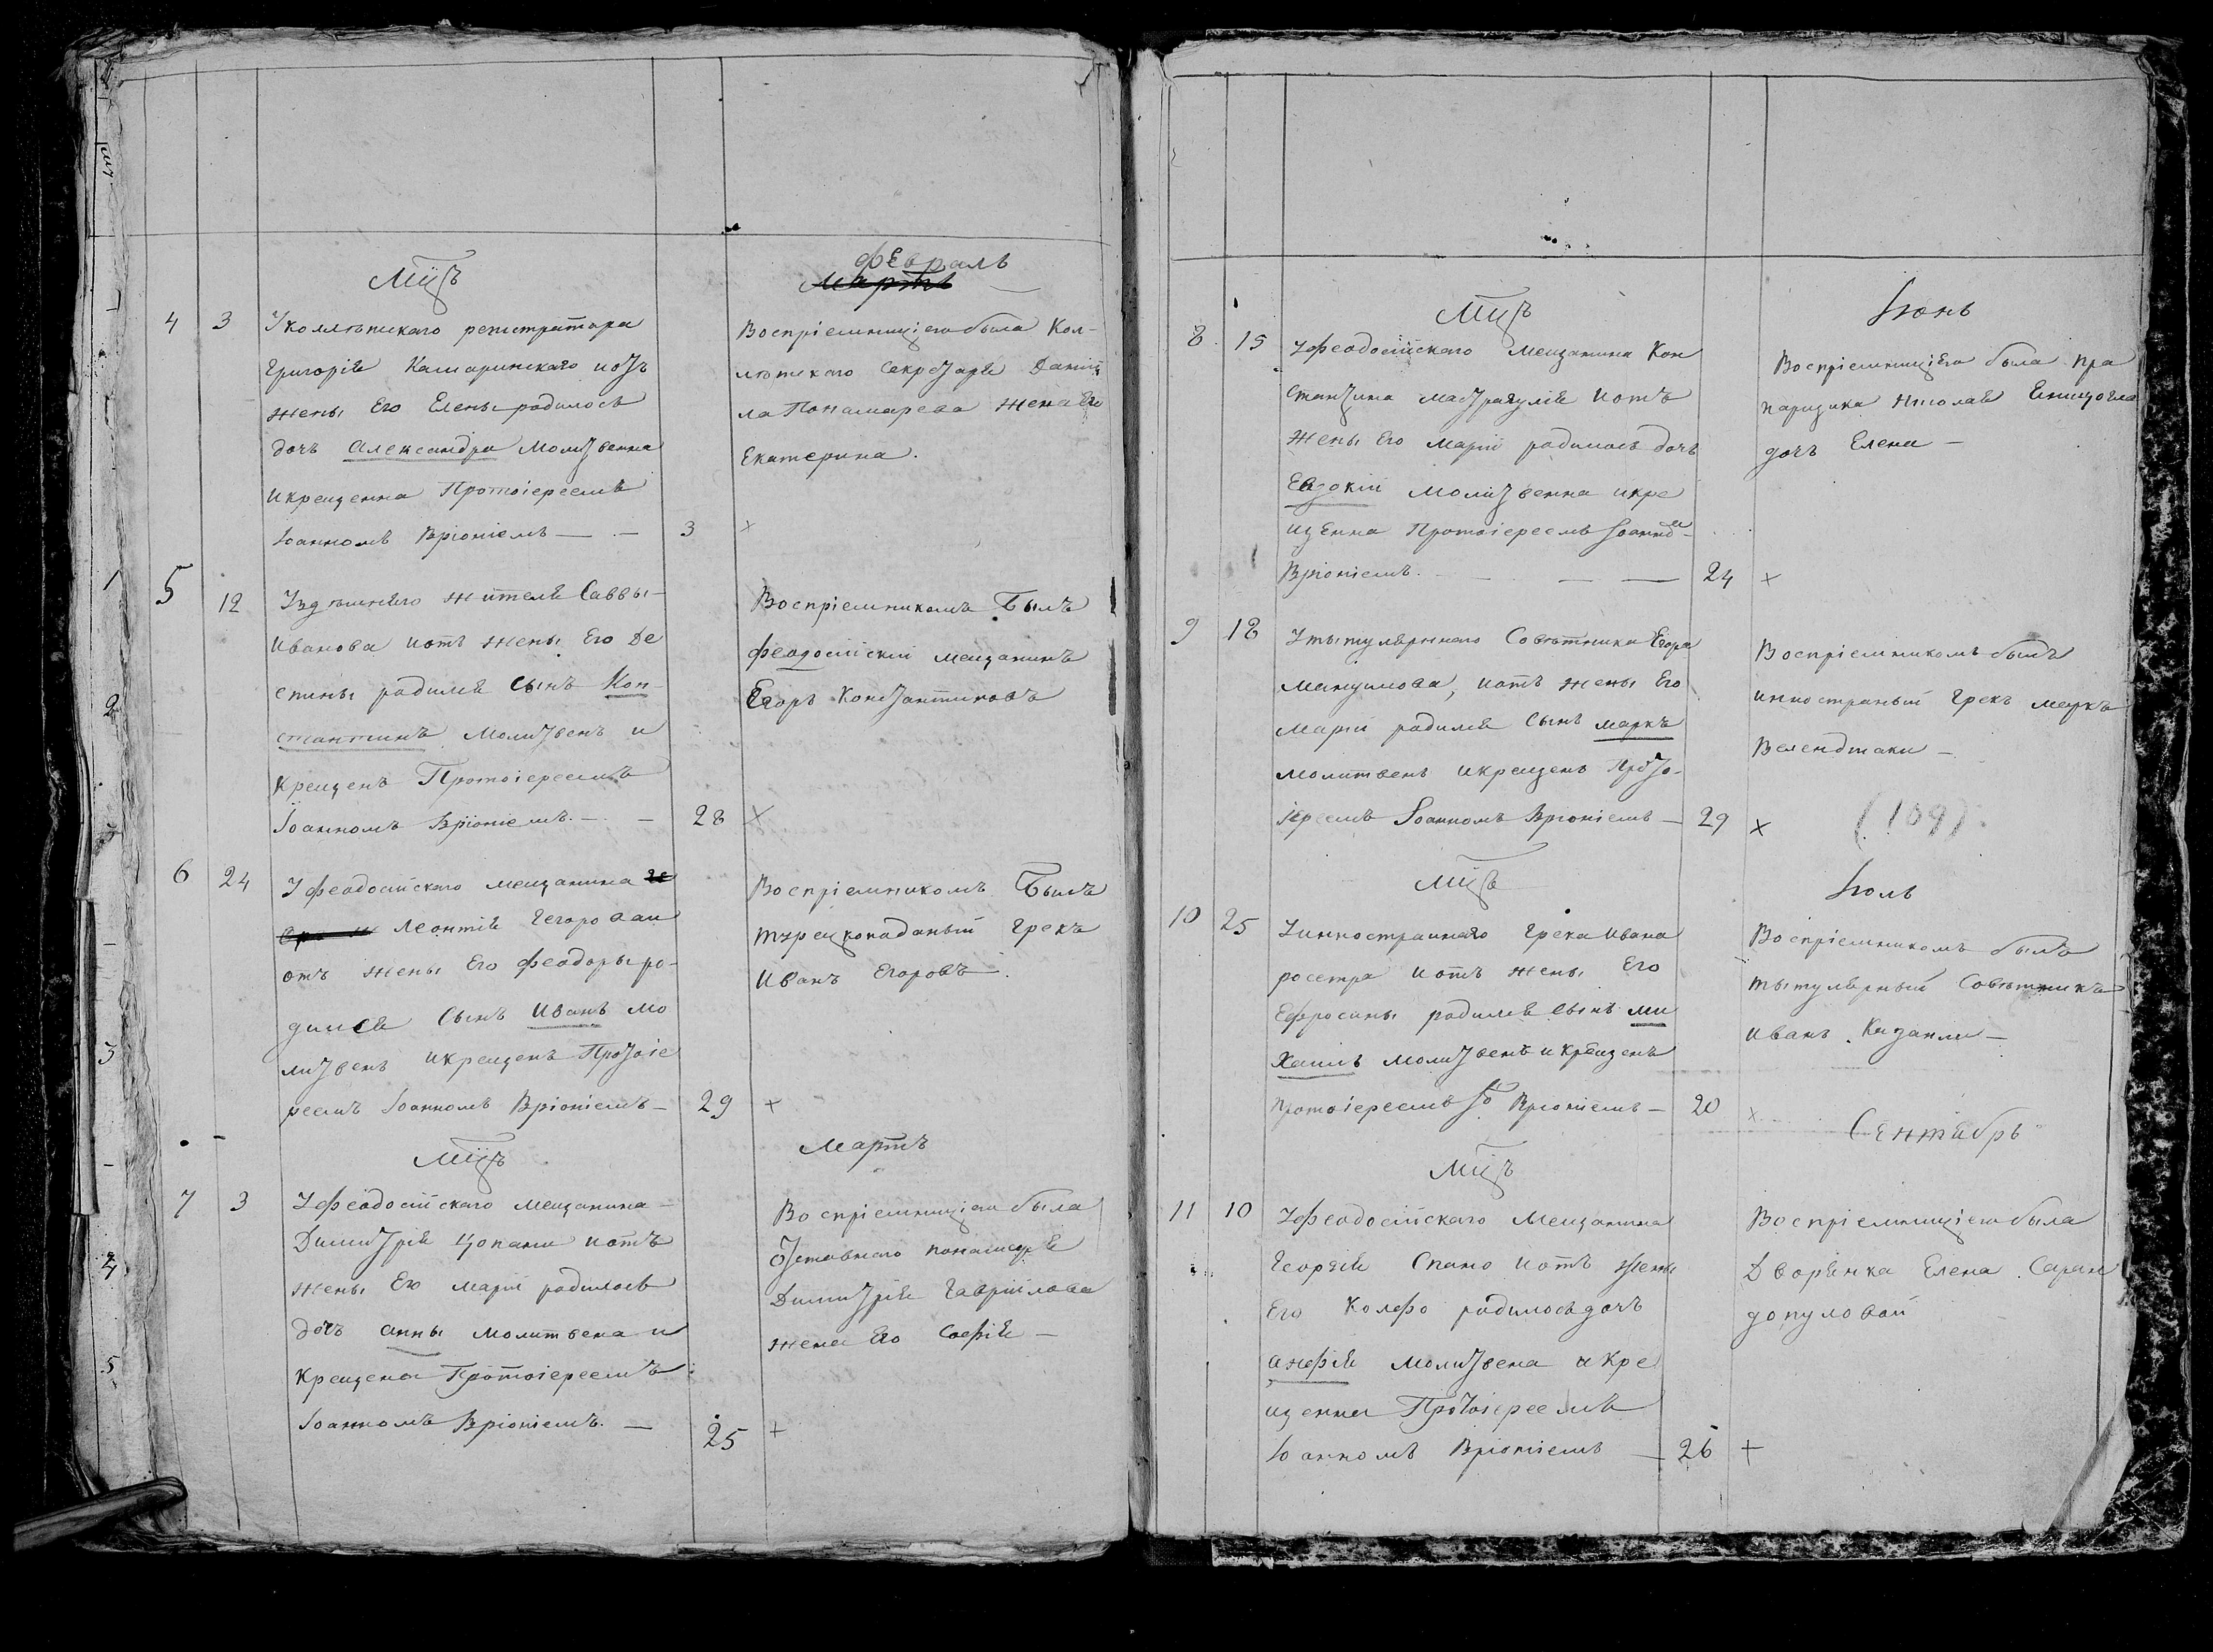 Мцъ
Февраль
Мартъ
4 3 У коллѣжскаго регистратора
Григорія Камаринскаго иотъ
жены Его Елены родилось
дочь Александра Молитвенна
и крещенна Протоіереемъ
Іоанномъ Вріоніемъ — — 3
Воспріемницією была Кол-
лѣжскаго Секретаря Даніи
ла Понамарева жена Его
Екатерина.
×
5 12 У здѣшняго жителя Саввы
Иванова иотъ жены Его Де
спины родился сынъ Кон-
стантинъ Молитвенъ и
крещенъ Протоіереемъ
Іоанномъ Вріоніемъ. — — 28
Воспріемникомъ Былъ
Феодосійскій мещанинъ
Егоръ Константиновъ
×
6 24 У Феодосійскаго мещанина
Леонтія Гегоро аи
отъ жены Его Феодоры ро-
дился Сынъ Иванъ мо
литвенъ икрещенъ Протоіе
реемъ Іоанномъ Вріоніемъ — 29
Воспріемникомъ Былъ
турецкоподаный Грекъ
Иванъ Егоровъ —.
×
Мцъ
Мартъ
7 3 У Феодосійскаго мещанина
Димитрія Цопани иотъ
жены Его Маріи родилось
дочь анны молитвена и
крещена Протоіереемъ
Іоанномъ Вріоніемъ. — 25
Воспріемницією была
отставнаго
Димитрія Гавріилова
жена Его Софія —
+
Мцъ
Іюнь
8 15 У Феодосійскаго мещанина Кон
стантина Мастрагулія иотъ
жены Его Маріи родилось дочь
Евдокіи Молитвенна икре
щенна Протоіереемъ Іоанно
Вріоніемъ. — — — 24
Воспріемницією была пра
парщика Николая
дочъ Елена —
×
9 18 У тытулярнаго Совѣтника Егора
Манцимова, иотъ жены Его
Маріи родился Сынъ Маркъ
молитвенъ икрещенъ Прото-
іереемъ Іоанномъ Вріоніемъ — 29
Воспріемникомъ былъ
инностраный Грекъ Маркъ
Веленджаки —
×
(109).
Мцъ
Іюль
10 25 У инностраннаго грека Ивана
росетра иотъ жены Его
Ефросины родился сынъ Ми
хаилъ молитвенъ и крещенъ
Протоіереемъ Іо Вріоніемъ — 20
Воспріемникомъ былъ
тытулярный Совѣтникъ
Иванъ. Казанли —
×
Мцъ
Сентябрь
11 10 У Феодосійскаго Мещанина
Георгія Спано иотъ Жены
Его Колфо родилось дочъ
анфія Молитвена и Кре
щенна Протоіереемъ
Іоанномъ Вріоніемъ — 26
Воспріемницією была
Дворянка Елена Саран
допуловай
+
1
2
3
4
5